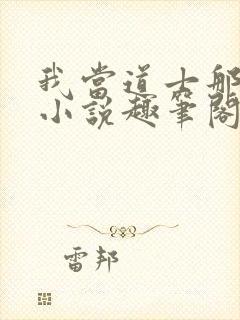 我當道士那
小說趣筆閣
雷邦